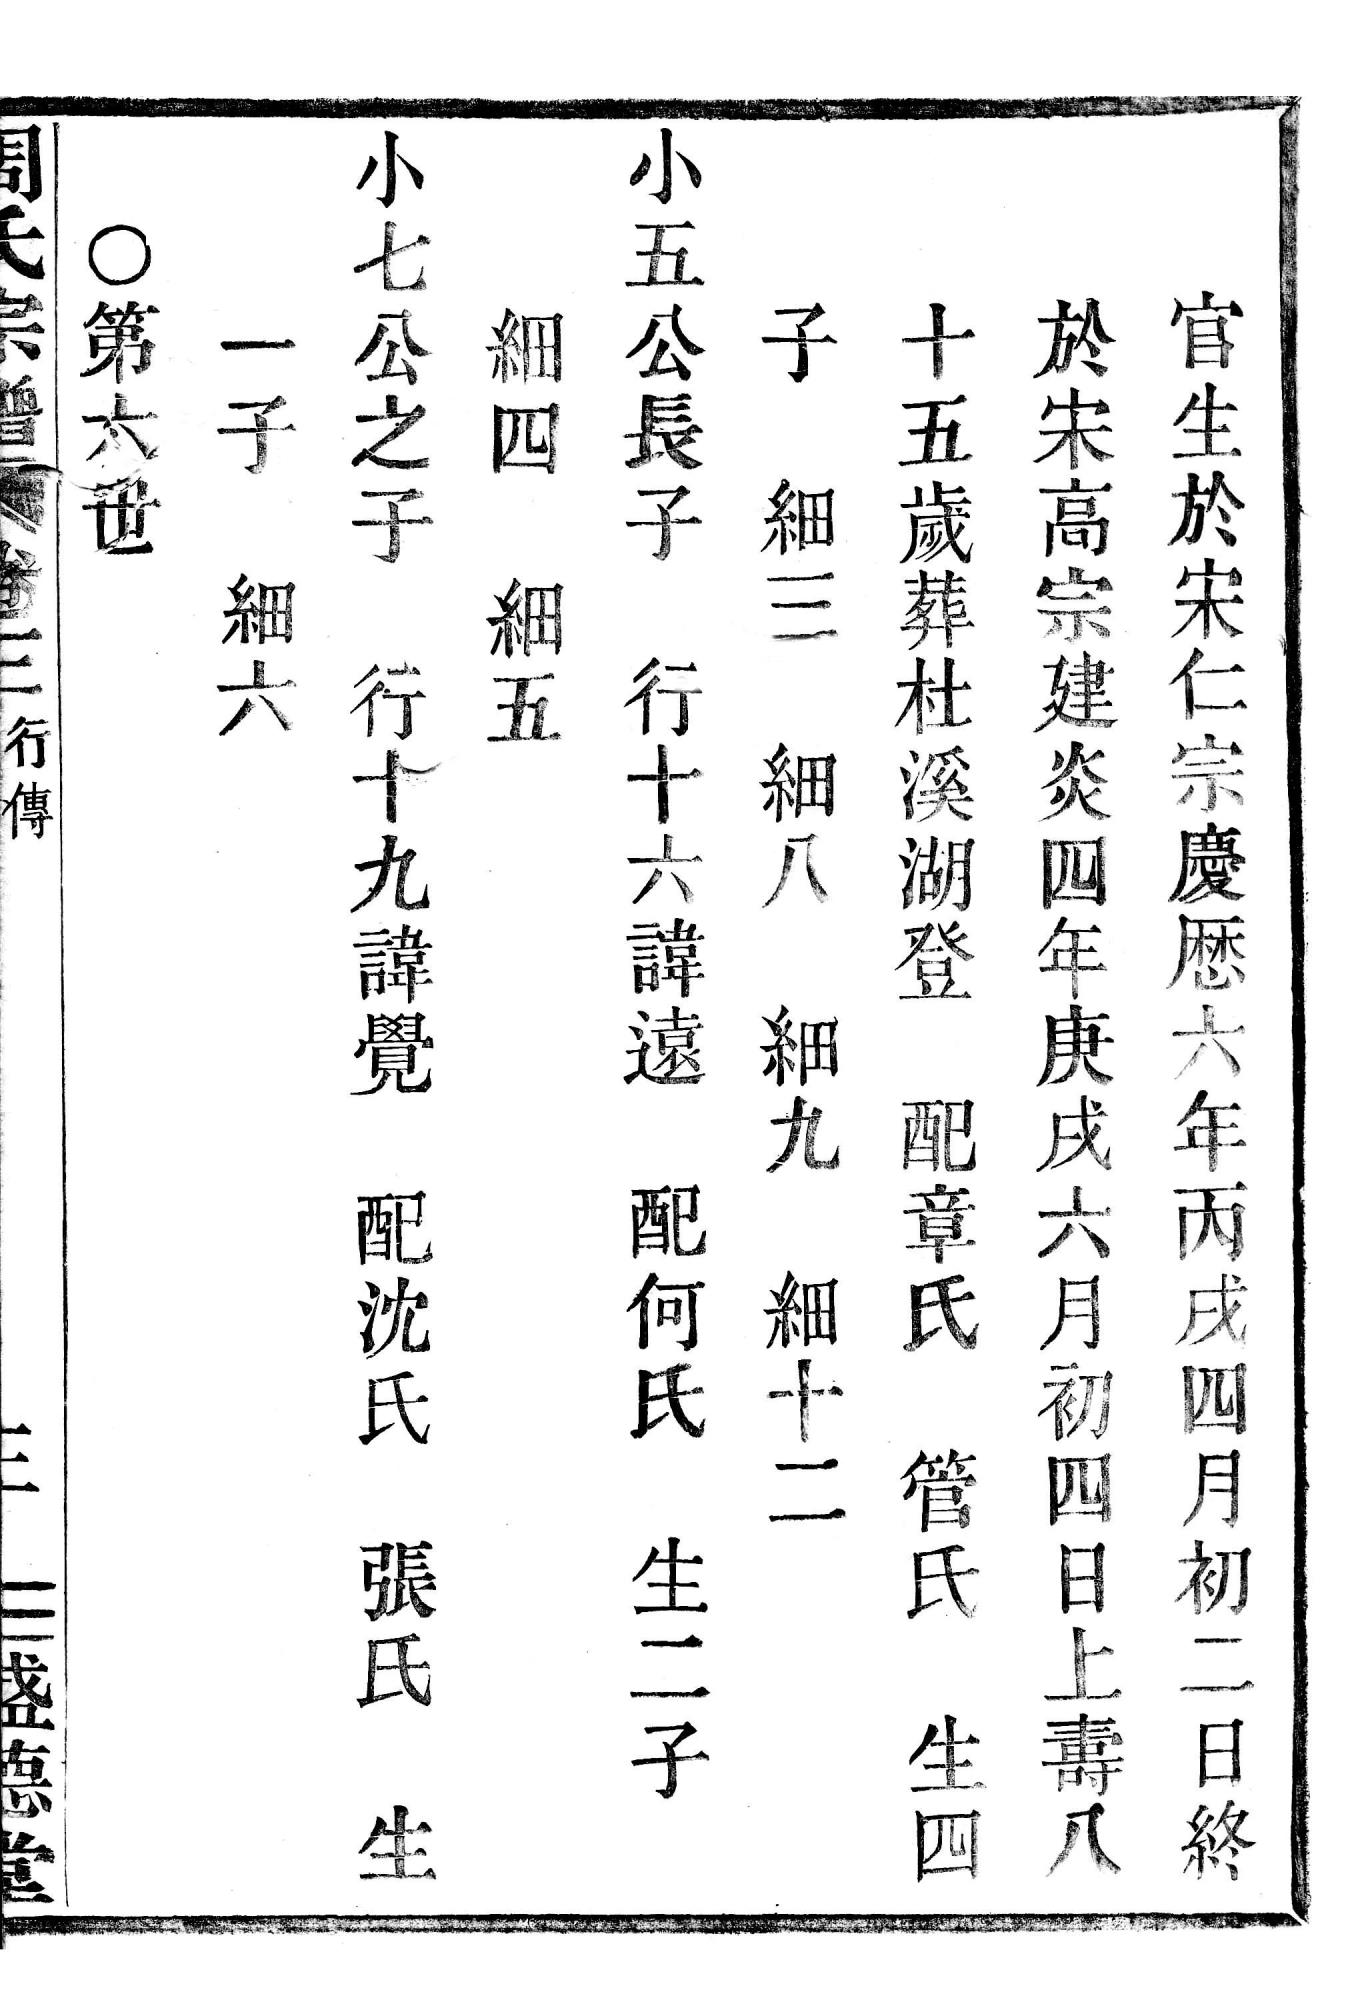 官生於宋仁宗慶厯六年丙戌四月初二日終
於宋高宗建炎四年庚戌六月初四日上壽八
十五歲葬杜溪湖登 配章氏 管氏 生四
子 細三 細八 細九 細十二
小五公長子 行十六諱遠 配何氏 生二子
細四 細五
小七公之子 行十九諱覺 配沈氏 張氏 生
一子 細六
○第六世
周氏宗譜 卷三 行傳 三 盛德堂